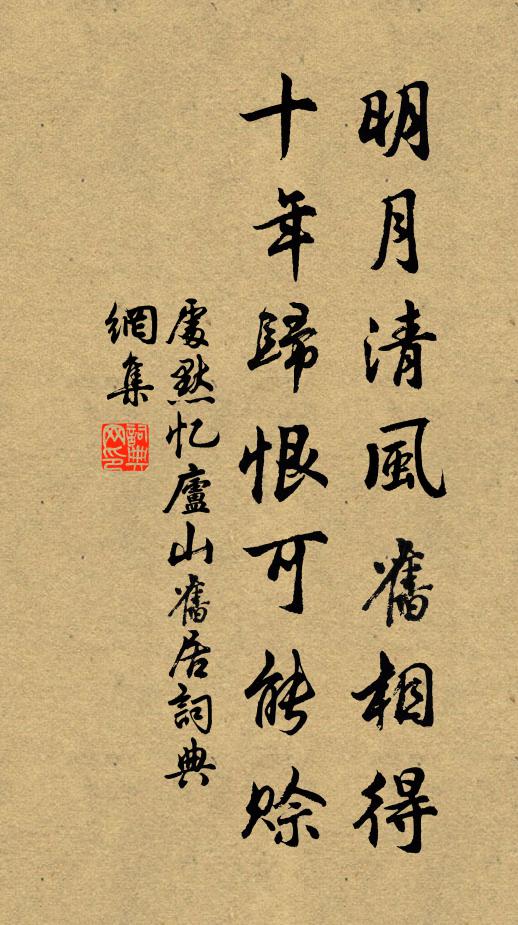 明月清風舊相得
十年歸恨可能賒
處默忆廬山舊居詞典
網集
詞典
网印